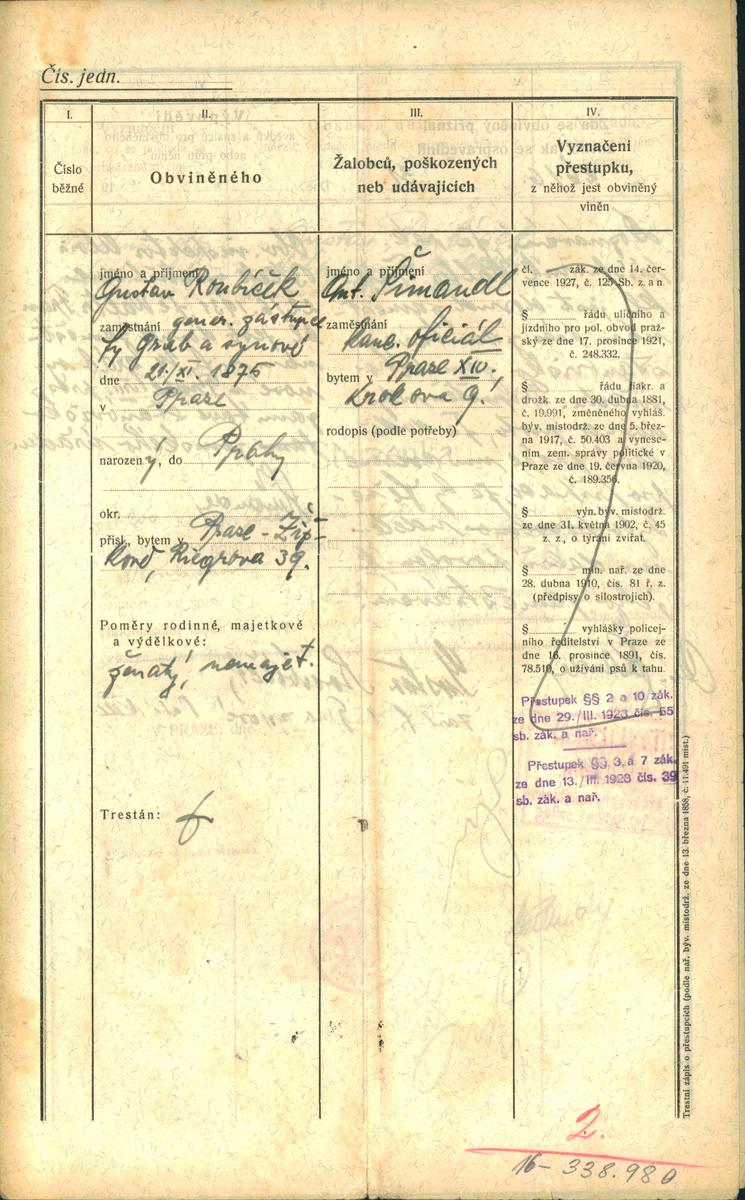 Čís. jedn.
I.
Číslo
běžné
II.
Obviněného
III.
Žalobců, poškozených
neb udávajících
IV.
Vyznačení
přestupku,
z něhož jest obviněný
viněn
jméno a příjmení
Gustav Roubíček
zaměstnání gener. zástupce
fy Grab a synové
dne 21./XI. 1875
v Praze
narozený, do Prahy
okr.
přísl., bytem v Praze - Žiž-
kově, Riegrova 39.
Poměry rodinné, majetkové
a výdělkové:
ženatý, nemajet.
Trestán:
jméno a příjmení
Ant. Šimandl
zaměstnání
kanc. oficiál
bytem v Praze XIV.
9.
rodopis (podle potřeby)
čl. zák. ze dne 14. čer-
vence 1927, č. 125 Sb. z. a n.
§ řádu uličního a
jízdního pro pol. obvod praž-
ský ze dne 17. prosince 1921,
č. 248.332.
§ řádu fiakr. a
drožk. ze dne 30. dubna 1881,
č. 19.991, změněného vyhláš.
býv. místodrž. ze dne 5. břez-
na 1917, č. 50.403 a vynese-
ním zem. správy politické v
Praze ze dne 19. června 1920,
č. 189.356.
§ výn. býv. místodrž.
ze dne 31. května 1902, č. 45
z. z., o týrání zvířat.
§ min. nař. ze dne
28. dubna 1910, čís. 81 ř. z.
(předpisy o silostrojích).
§ vyhlášky policej-
ního ředitelství v Praze ze
dne 16. prosince 1891, čís.
78.510, o užívání psů k tahu.
Přestupek §§ 2 a 10 zák.
ze dne 29./III. 1923 čís. 55
sb. zák. a nař.
Přestupek §§ 3. a 7 zák.
ze dne 13./III. 1923 čís. 39
sb. zák. a nař.
Trestní zápis o přestupcích (podle nař. býv. místodrž. ze dne 13. března 1858, č. 11.491 míst.)
2.
16-338.980